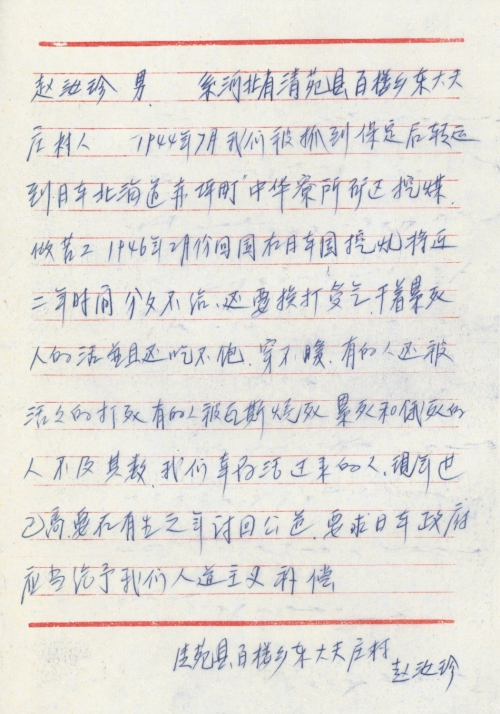 赵汝珍 男 系河北省清苑县百楼乡东大夫
庄村人 1944年7月我们被抓到保定后转运
到日本北海道赤坪町"中华寮所 矿区挖煤
做苦工 1946年2月份回国在日本国挖煤将近
二年时间 分文不给、还要挨打受气、干着累死
人的活并且还吃不饱、穿不暖、有的人还被
活活的打死有的人被瓦斯烧死 累死和饿死的
人不及其数、我们幸存活过来的人、现年也
已高、要在有生之年讨回公道、要求日本政府
应当给予我们人道主义补偿
清苑县百楼乡东大夫庄村
赵汝珍